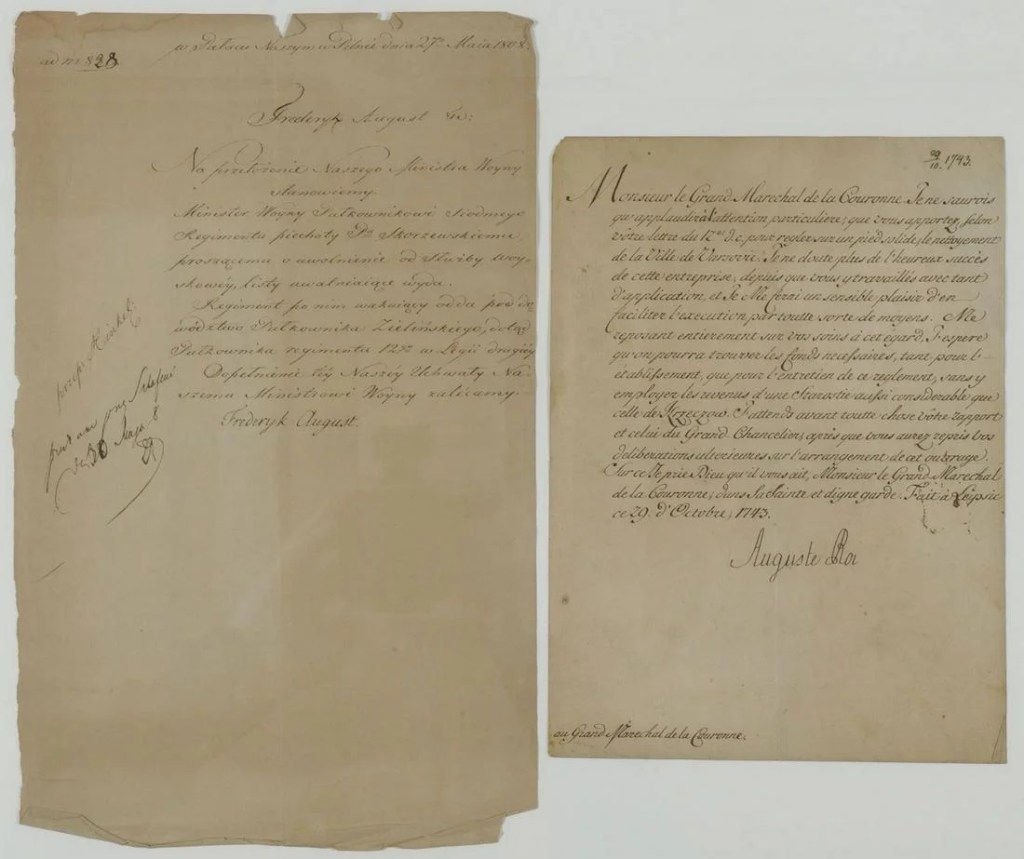 w Pałacu Naszym w Pilnie dnia 27º Maia 1808.
ad nro 828
Frederyk August &c:
Na przełożenie Naszego Ministra Woyny
stanowiemy.
Minister Woyny Pułkownikowi siodmego
Regimentu piechoty Pu Skorzewskiemu
proszącemu o uwolnienie od służby woy-
skowéy, listy uwalniaiące wyda.
Regiment po nim wakuiący odda pod do-
wództwo Pułkownika Zielińskiego, dotąd
Pułkownika regimentu 12go w Legii drugiéy
Dopełnienie téy Naszéy Uchwały Na-
szemu Ministrowi Woyny zalicamy.
Frideryk August.
de 30
29/10. 1743.
Monsieur le Grand Marechal de la Couronne. Je ne saurois
qu'applaudir à l'attention particuliere, que vous apportez, selon
vôtre lettre du 12me d.c. pour regler sur un pied solide, le nettoyement
de la Ville de Varsovie. Je ne doute plus de l'heureux succès
de cette entreprise, depuis que vous y travaillés avec tant
d'application, et Je Me ferai un sensible plaisir d'en
faciliter l'execution par toutte sorte de moyens. Me
reposant entierement sur vos soins à cet égard, J'espere
qu'on pourra trouver les fonds necessaires, tant pour l'-
etablissement, que pour l'entretien de ce reglement, sans y
employer les revenus d'une Starostie aussi considerable que
celle de J'attends avant toutte chose vôtre rapport
et celui du Grand Chancelier, après que vous aurez repris vos
deliberations ulterieures sur l'arrangement de cet ouvrage.
Sur ce Je prie Dieu qu'il vous ait, Monsieur le Grand Marechal
de la Couronne, dans Sa Sainte et digne garde. Fait à Leipsic
ce 29. d'Octobre, 1743.
Auguste Roi
au Grand Marechal de la Couronne.